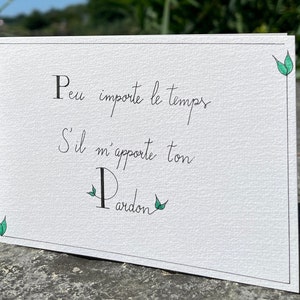 Peu importe le temps
S'il m'apporte ton
Pardon